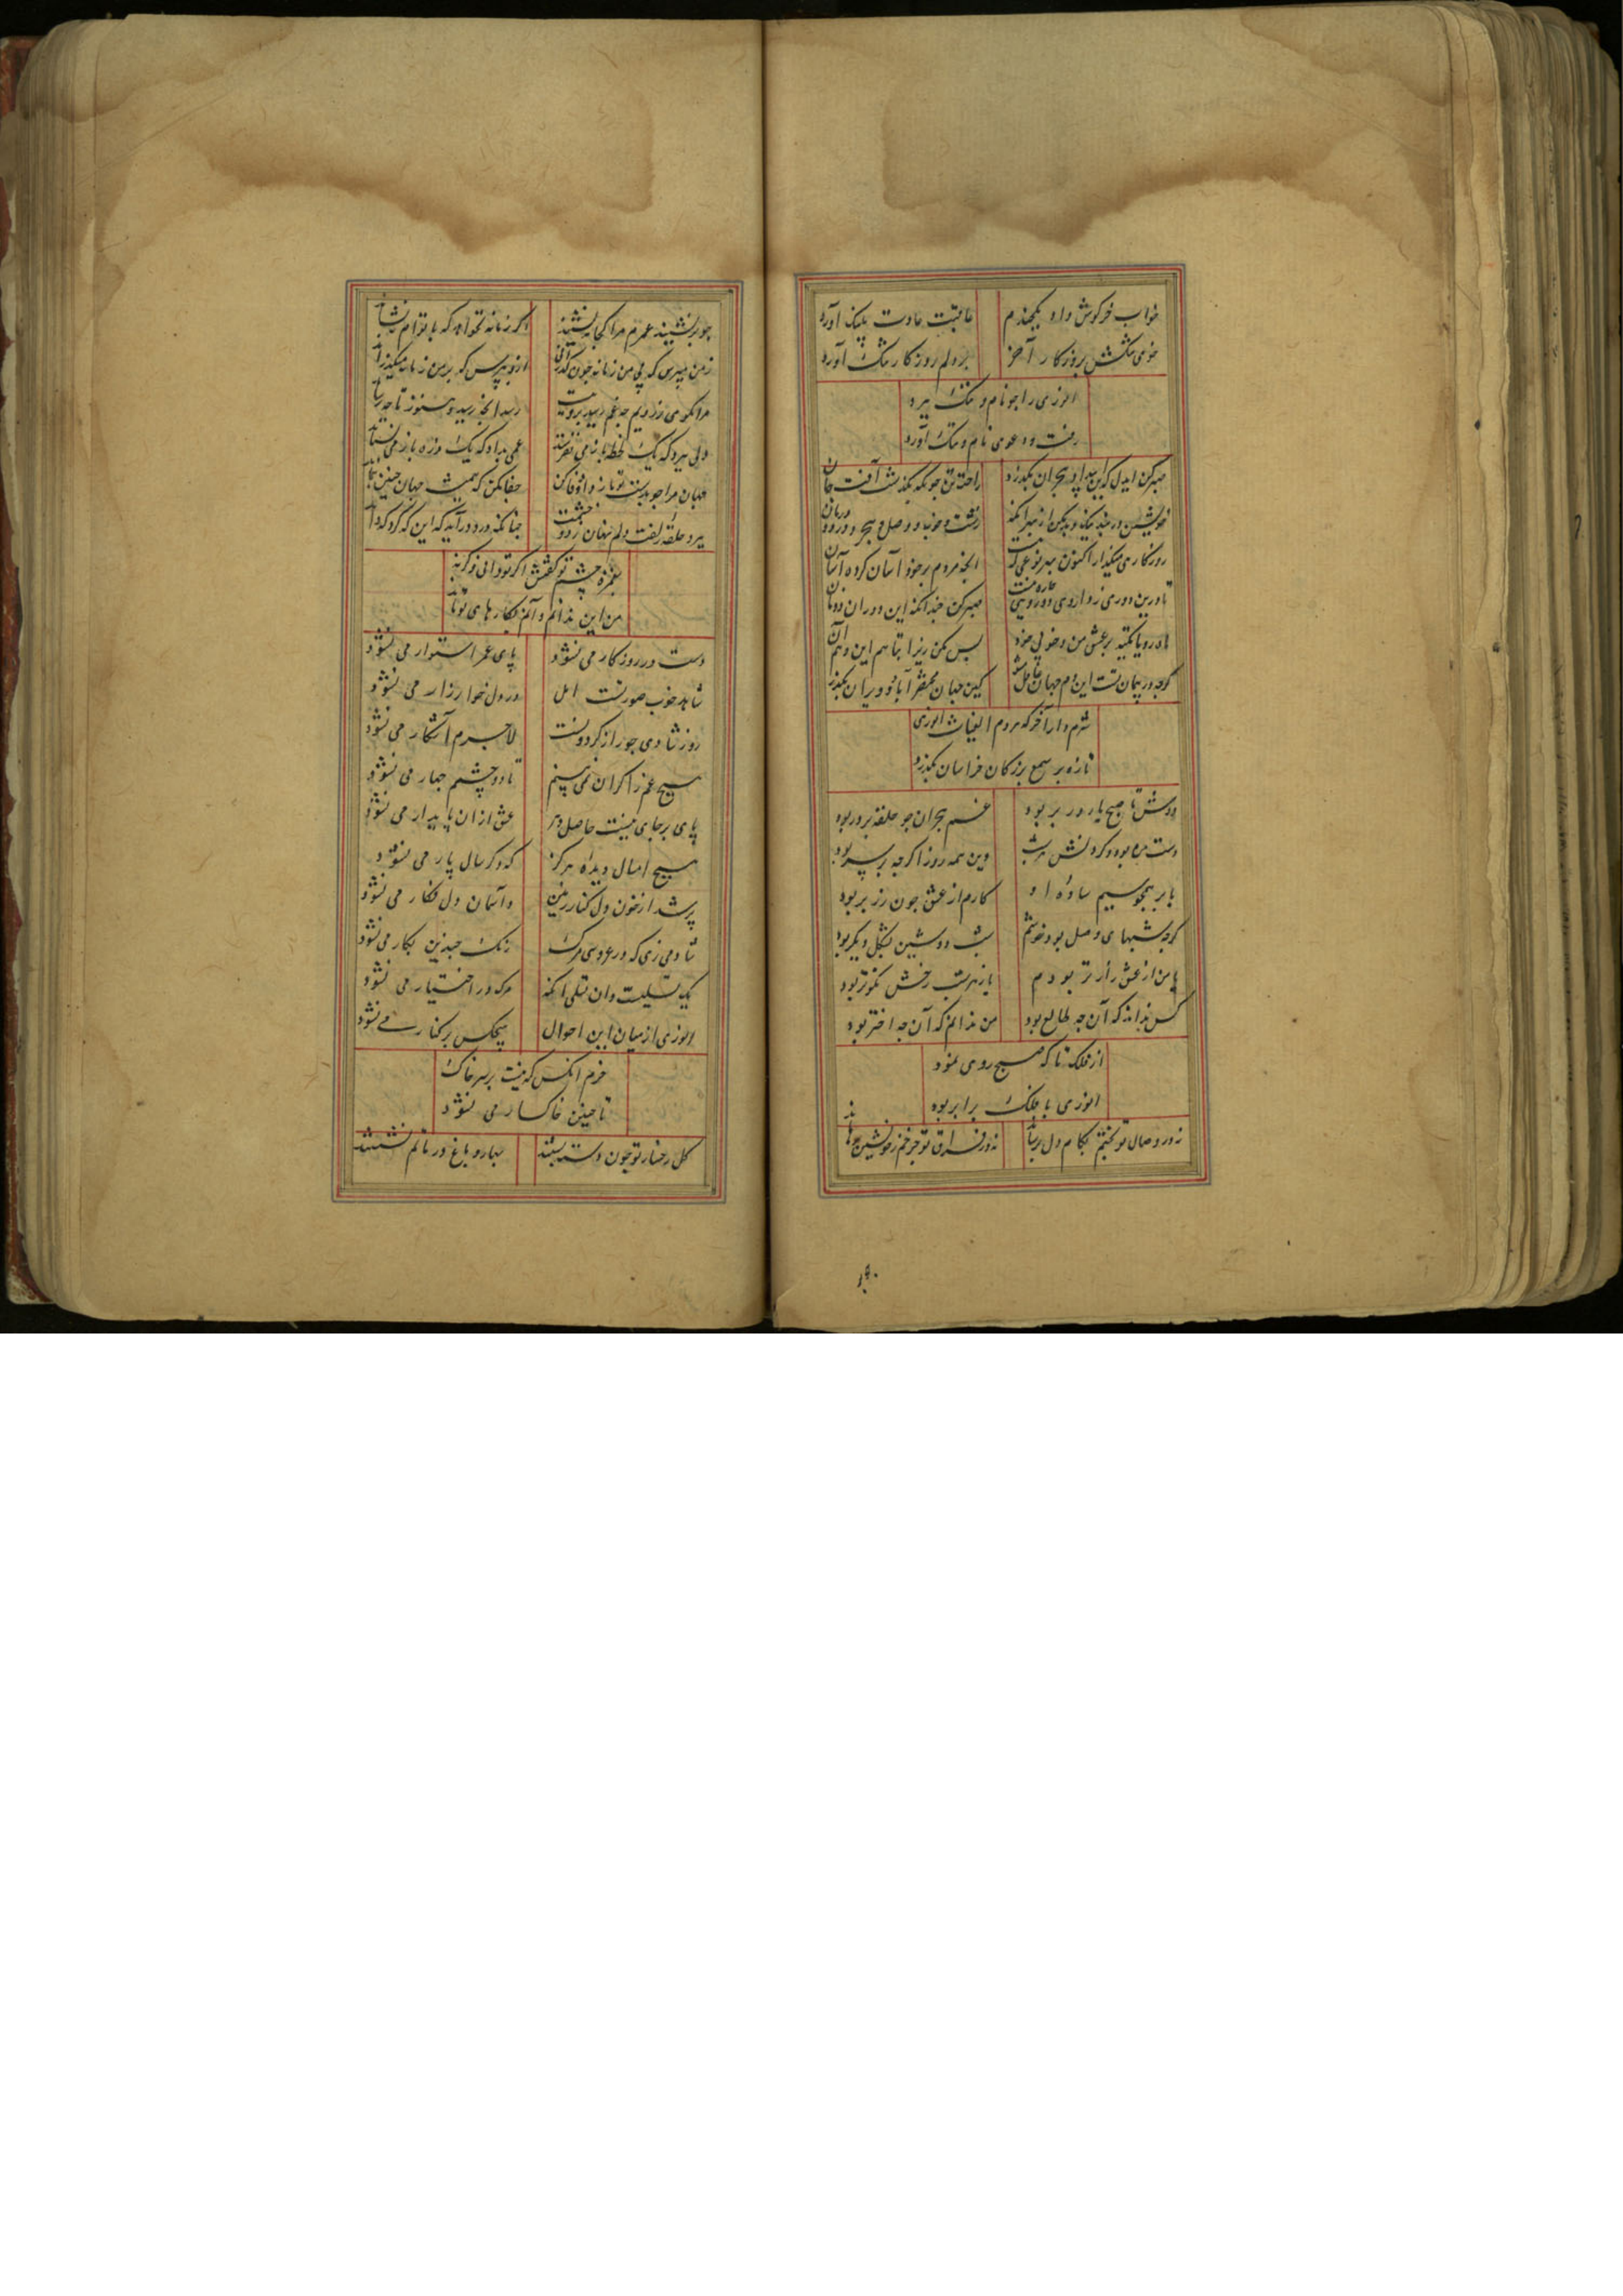 خواب خرکوش داد یکچندم عاقبت عادت پلنک آورد
خوی تنکش بروزکار آخر بر دلم روزکار تنک آورد
انوری را چو نام و ننک ببرد
رفت و دعوی نام و ننک آورد
صبر کن ایدل که این بیداد هجران بکذرد راحت تن چونکه بکذشت آفت جان
خویشتن در بند نیک و بد مکن از بهر آنکه زشت و خوب و وصل و هجر و درد و درمان
روزکاری میکذار اکنون بهر نوعی که هست انچه مردم بر خود آسان کرد آسان
تا درین دوری ز داروی و درد بی چاره نیست صبر کن چندانکه این دوران دونان
ماه رویا تکیه بر عشق من و خوبی خود بس مکن زیرا بتا هم این و هم آن
کرچه در پیمان تست این دم جهان غافل مشو کین جهان مختصر آباد و ویران بکذرد
شرم دار آخر که هر دم الغیاث انوری
تازه بر سمع بزرکان خراسان بکذرد
دوش تا صبح یار در بر بود غم هجران چو حلقه بر در بود
دست من بود و کردنش همه شب وین همه روز اکرچه بر سر بود
با بر همچو سیم ساده او کارم از عشق چون زر بر بود
کرچه شبهای وصل بود خوشم شب دوشین بشکل دیکر بود
یا من از عشق زارتر بودم یا ز هر شب رخش نکوتر بود
کس نداند که آن چه طالع بود من ندانم که آن چه اختر بود
از فلک تا که صبح روی نمود
انوری با فلک برابر بود
نه در وصال تو بختم بکام دل برساند نه در فراق تو چرخم ز خویشتن برهاند
چو برنشیند عمرم مرا کجا بنشیند اکر زمانه نخواهد که با توام بنشاند
ز من مپرس که بی من زمانه چون کذرانی ازو بپرس که بر من زمانه میکذراند
مرا مکوی ز رویم چه غم رسید برویت رسد انچه رسید و هنوز تا چه رساند
دلی ببرد که یک لحظه باز می نفرستد غمی بداد که یک ذره باز می نستاند
جهان مرا چو بدست تو باز داد وفا کن جفا مکن که همیشه جهان چنین بنماند
ببرد حلقه زلفت دلم نهان ز دو چشمت چنانکه درد درآید که این که کرد که داند
بغمزه چشم تو کفتش اکر تو دانی و کرنه
من این ندانم و آنم که کارهای تو داند
دست در روزکار می نشود پای عمر استوار می نشود
شاهد خوب صورتست امل در دل خوار زار می نشود
روز شادی چو راز کردونست لاجرم آشکار می نشود
هیچ غم را کران نمی بینم تا دو چشم چهار می نشود
پای برجای نیست حاصل دهر عشق ازان پایدار می نشود
هیچ امسال دیده هرکز که دکر سال پار می نشود
پر شد از خون دل کنار زمین و آسمان دل فکار می نشود
شادمی زی که در عروسی مرک رنک چندین بکار می نشود
یک تسلیست وان تسلی آنکه مرک در اختیار می نشود
انوری از میان این احوال هیچکس بر کنار می نشود
خرم آنکس که نیست بر سر خاک
تا چنین خاکسار می نشود
کل رخسار تو چون دسته بستند بهار و باغ در ماتم نشستند
۱۴۰